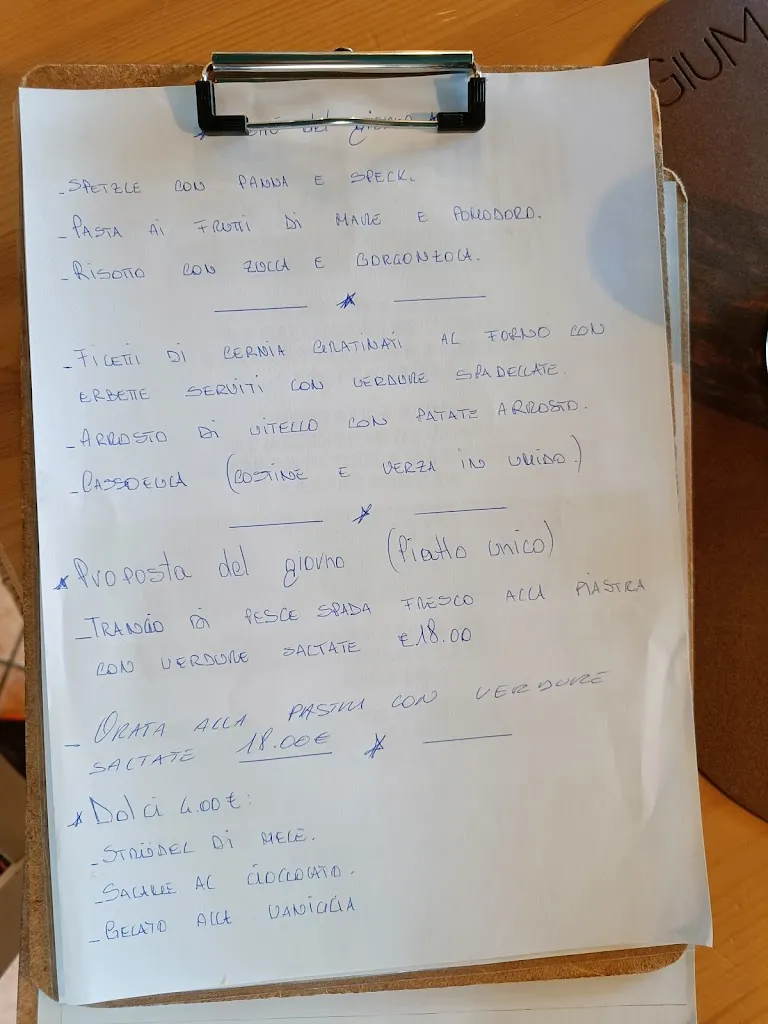 GIUM
* Menù del giorno *
- SPETZLE CON PANNA E SPECK.
- PASTA AI FRUTTI DI MARE E POMODORO.
- RISOTTO CON ZUCCA E GORGONZOLA.
*
- FILETTI DI CERNIA GRATINATI AL FORNO CON
ERBETTE SERVITI CON VERDURE SPADELLATE.
- ARROSTO DI VITELLO CON PATATE ARROSTO.
- CASSOEULA (COSTINE E VERZA IN UMIDO.)
*
* Proposta del giorno (Piatto unico)
- TRANCIO DI PESCE SPADA FRESCO ALLA PIASTRA
CON VERDURE SALTATE €18.00
- ORATA ALLA PIASTRA CON VERDURE
SALTATE 18.00€ *
* Dolci 4.00€:
- STRUDEL DI MELE.
- SALAME AL CIOCCOLATO.
- GELATO ALLA VANIGLIA